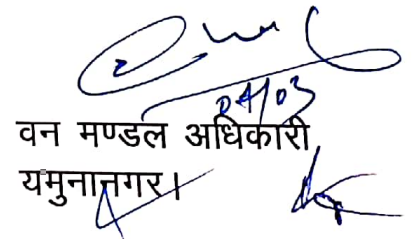 04/03
वन मण्डल अधिकारी
यमुनानगर।